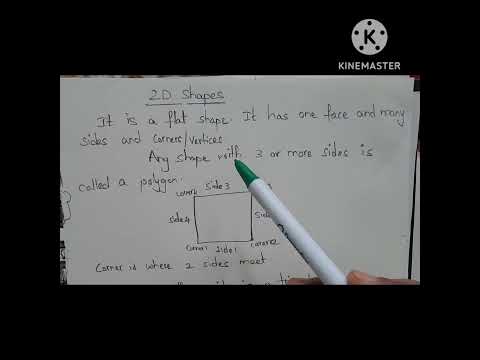 KINEMASTER
2D Shapes
It is a flat shape. It has one face and many
sides and corners/vertices.
Any shape with 3 or more sides is
called a polygon.
corner4 side3 3
side4 side
corner1 side1 corner2
Corner is where 2 sides meet